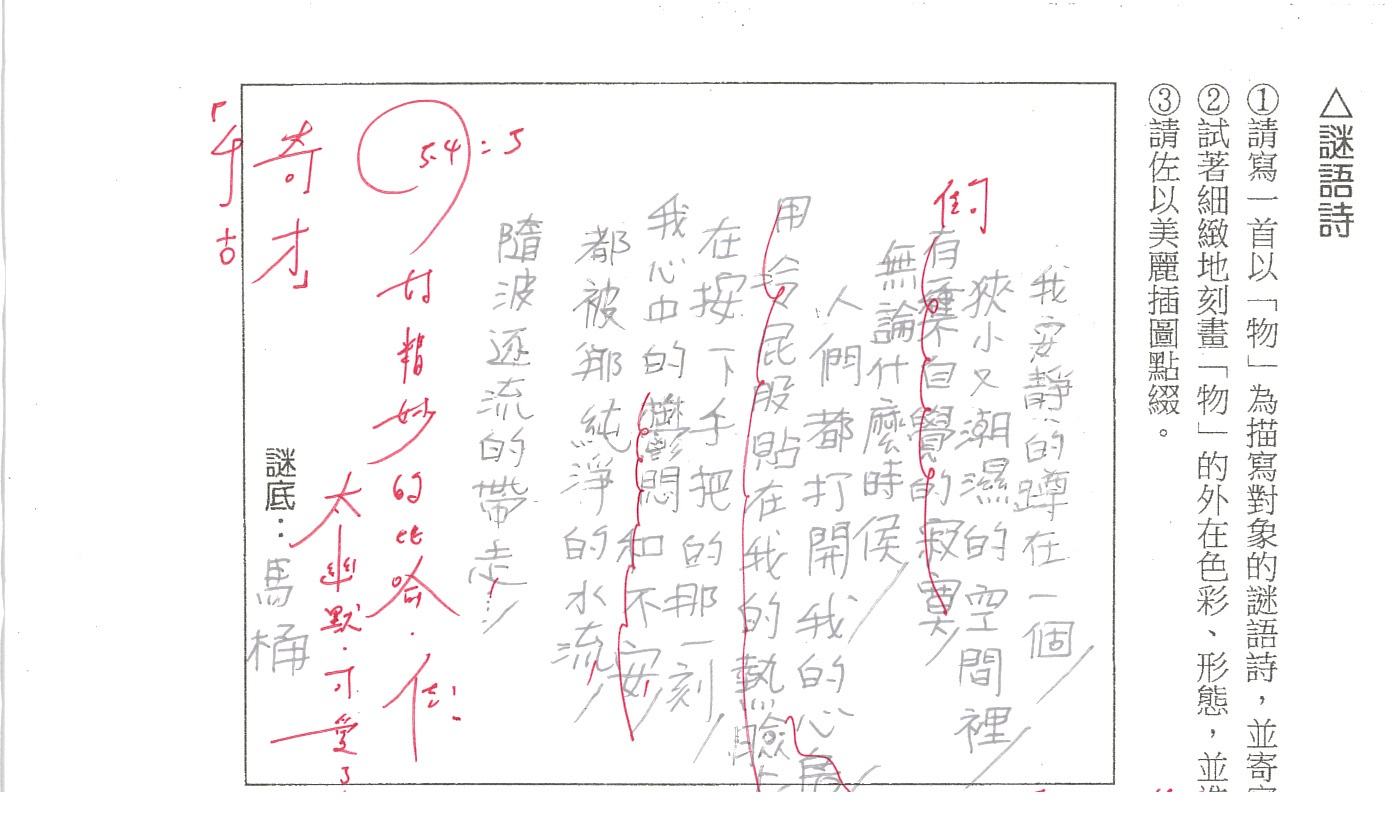 △謎語詩
①請寫一首以「物」為描寫對象的謎語詩，並寄
②試著細緻地刻畫「物」的外在色彩、形態，並
③請佐以美麗插圖點綴。
我安靜的蹲在一個/
狹小又潮濕的空間裡/
有種不自覺的寂寞/
無論什麼時侯/
人們都打開我的心房/
用冷屁股貼在我的熱臉上
在按下手把的那一刻/
我心中的鬱悶和不安/
都被那純淨的水流/
隨波逐流的帶走…/
5.4
精妙的比喻
太幽默、可愛了
奇才」
「千古
謎底：馬桶